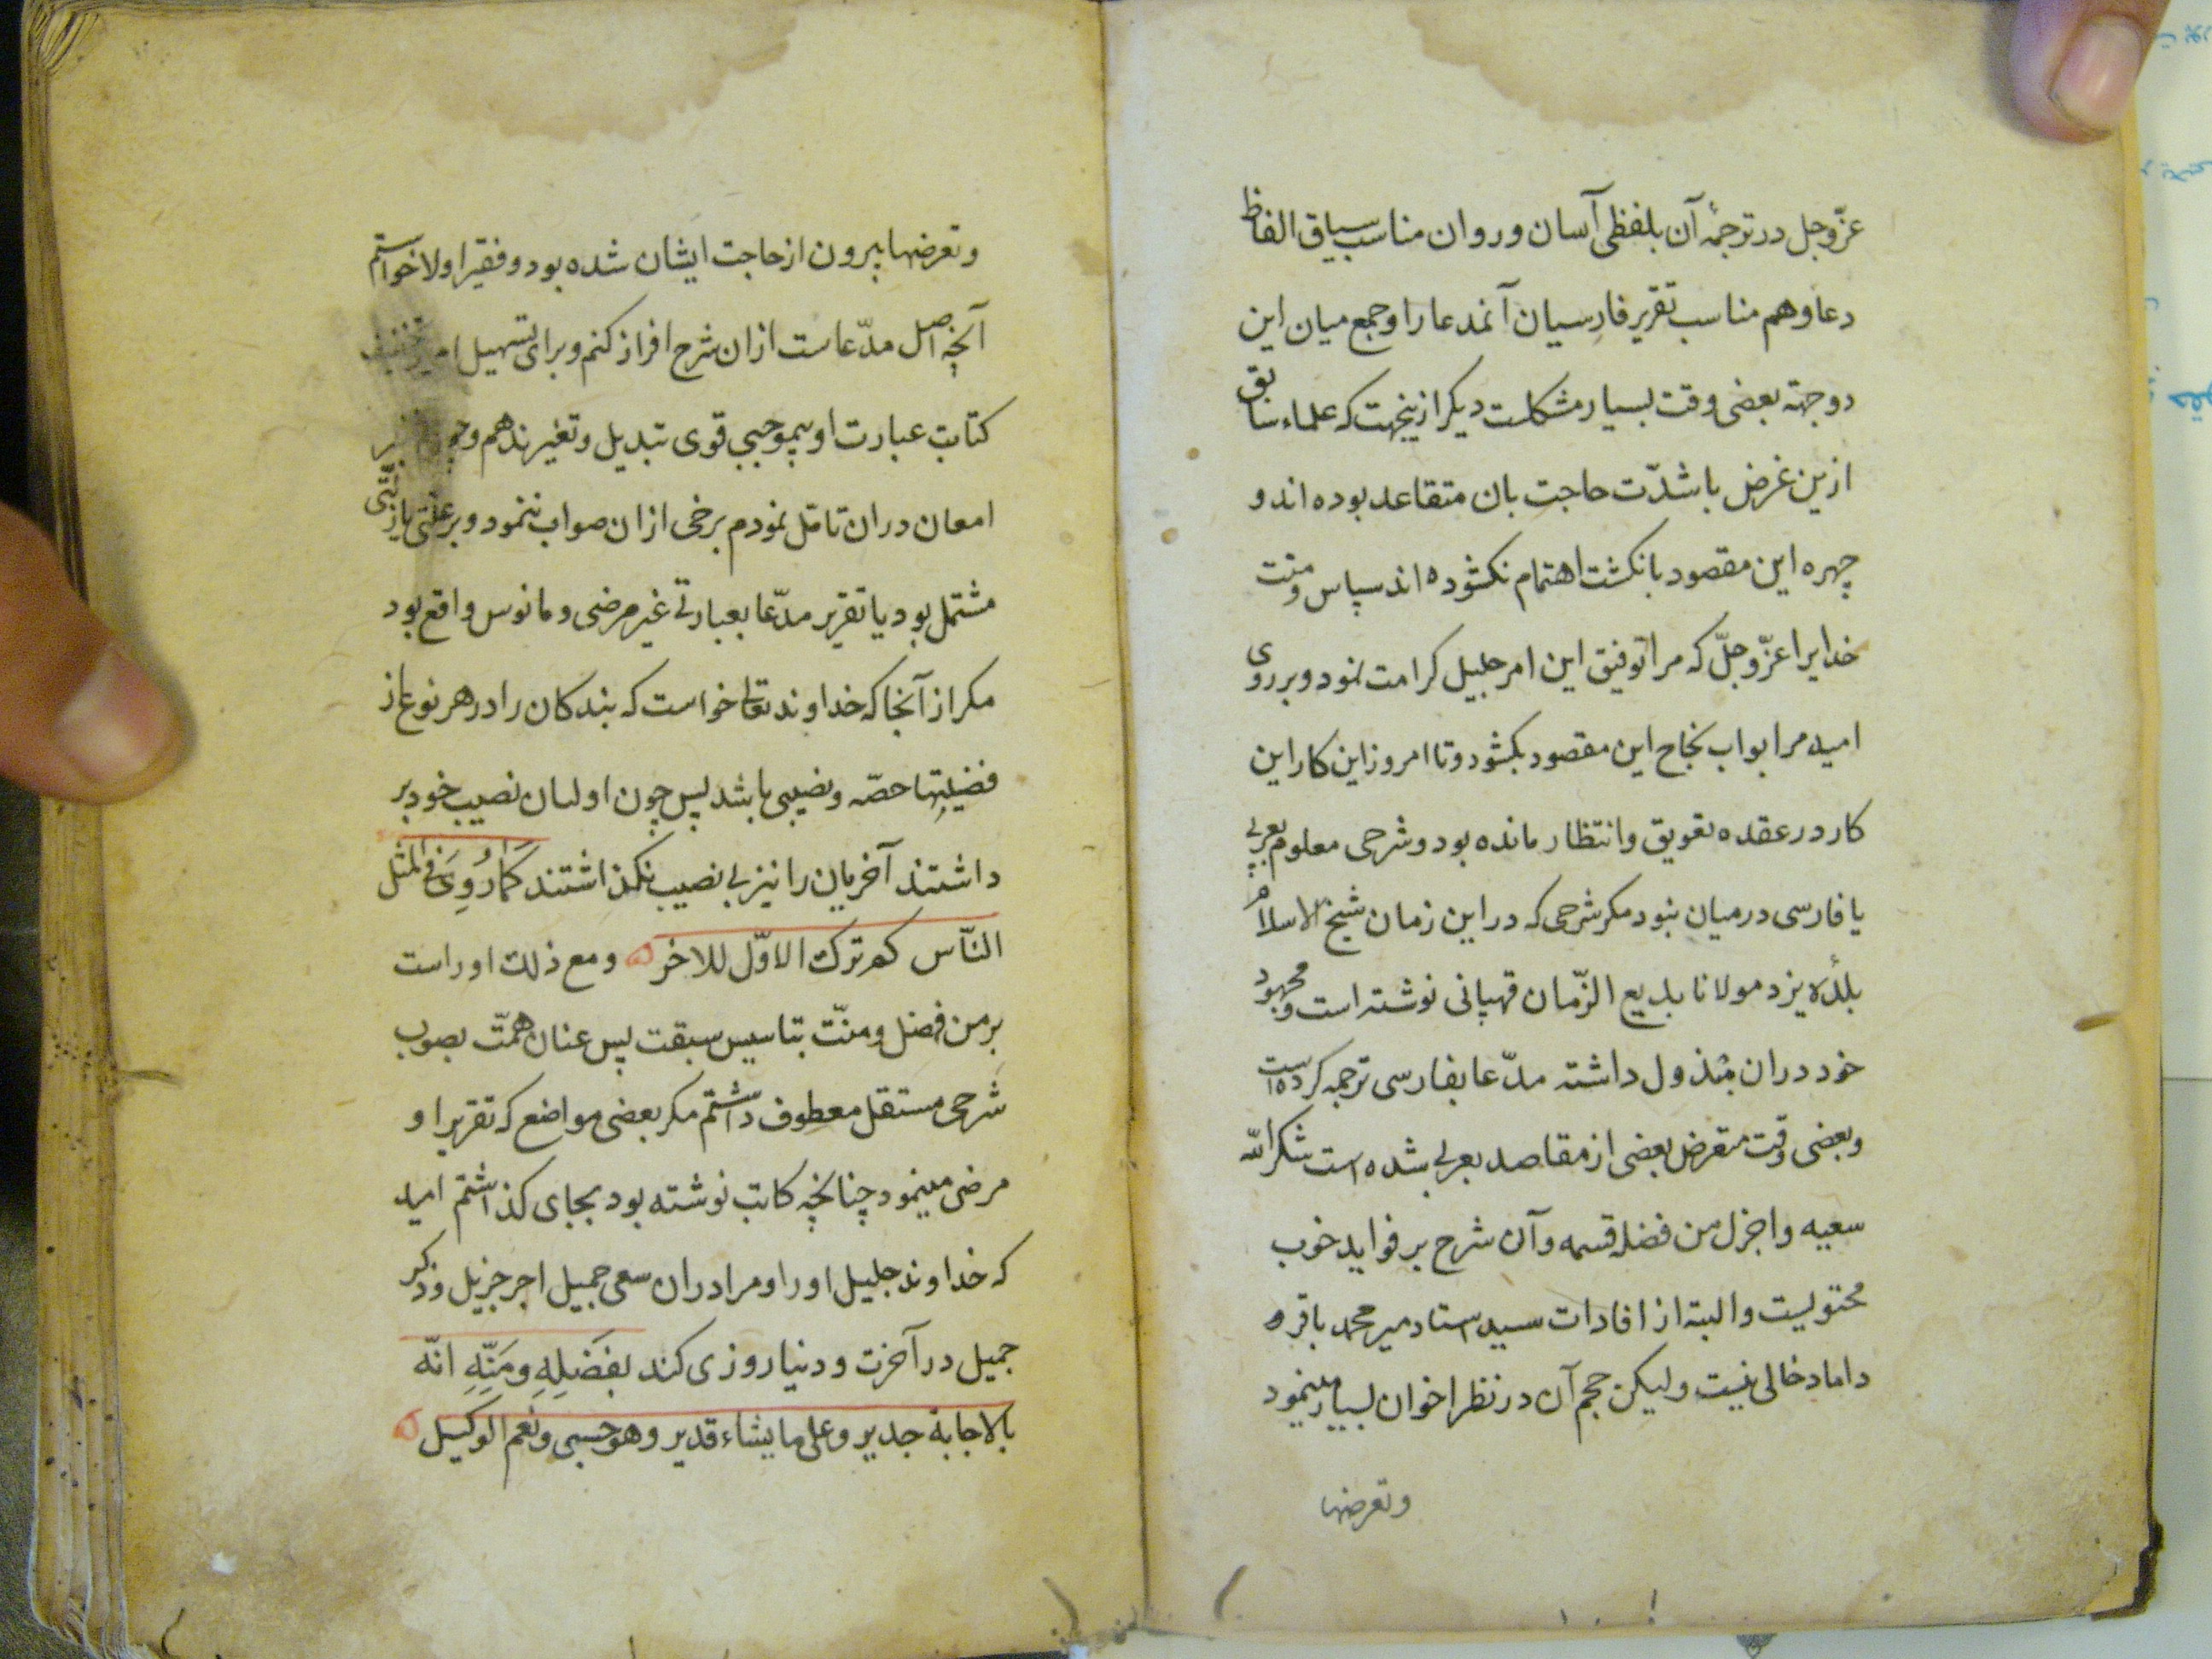 عزّوجل در ترجمهٔ آن بلفظی آسان و روان مناسب سیاق الفاظ
دعا و هم مناسب تقریر فارسیان آنمدعا را و جمع میان این
دو جهة بعضی وقت بسیار مشکلست دیکر ازینجهت که علماء سابق
ازین غرض با شدّت حاجت بان متقاعد بوده اند و
چهره این مقصود بانکشت اهتمام نکشوده اند سپاس و منت
خدایرا عزّوجلّ که مرا توفیق این امر جلیل کرامت نمود و بر روی
امید مرا بواب نجاح این مقصود بکشود و تا امروز این کار این
کار در عقده تعویق و انتظار مانده بود و شرحی معلوم بعربی
یا فارسی در میان نبود مکر شرحی که در این زمان شیخ الاسلام
بلدهٔ یزد مولانا بدیع الزّمان قهپانی نوشته است و مجهود
خود دران مبذول داشته مدّعا بفارسی ترجمه کرده است
و بعضی وقت متعرض بعضی از مقاصد بعربی شده است شکر الله
سعیه و اجزل من فضله قسمه و آن شرح بر فواید خوب
محتویست و البته از افادات سید استاد میر محمد باقر
داماد خالی نیست ولیکن حجم آن در نظر اخوان بسیار مینمود
و تعرضها
و تعرضها بیرون از حاجت ایشان شده بود و فقیر اولا خواستم
آنچه اصل مدّعاست ازان شرح افراز کنم و برای تسهیل
کتابت عبارت او بیموجبی قوی تبدیل و تغیر ندهم و
امعان دران تامّل نمودم برخی ازان صواب ننمود و بر
مشتمل بود یا تقریر مدّعا بعبارتی غیر مرضی و مانوس واقع بود
مکر از آنجا که خداوند تعالی خواست که بندکان را در هر نوع از
فضیلتها حصّه و نصیبی باشد پس چون اولیان نصیب خود بر
داشتند آخریان را نیز بی نصیب نکذاشتند كَمَا رُوِيَ في المثل
النّاس كم ترك الاوّل للاخر و مع ذلك او راست
بر من فضل و منّت بتاسیس سبقت پس عنان همّت بصوب
شرحی مستقل معطوف داشتم مکر بعضی مواضع که تقریر او
مرضی مینمود چنانچه کاتب نوشته بود بجای کذاشتم امید
که خداوند جلیل او را و مرا دران سعی جمیل اجر جزیل و ذکر
جمیل در آخرت و دنیا روزی کند بِفَضلِهِ و مَنِّهِ انّه
بالاجابة جدیر و علی ما یشاء قدیر و هو حسبی و نعم الوکیل